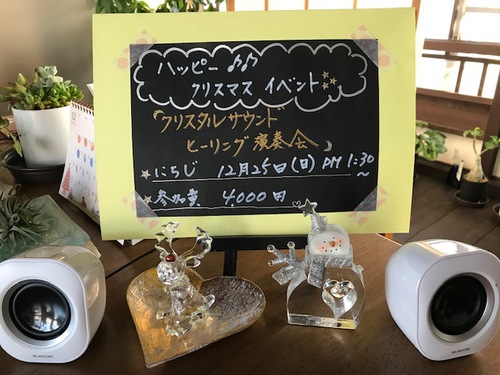 ハッピー♪♪♪
クリスマス イベント
『クリスタルサウンド
ヒーリング演奏会』
にちじ 12月25日(日) PM 1:30
～
参加費 4,000円